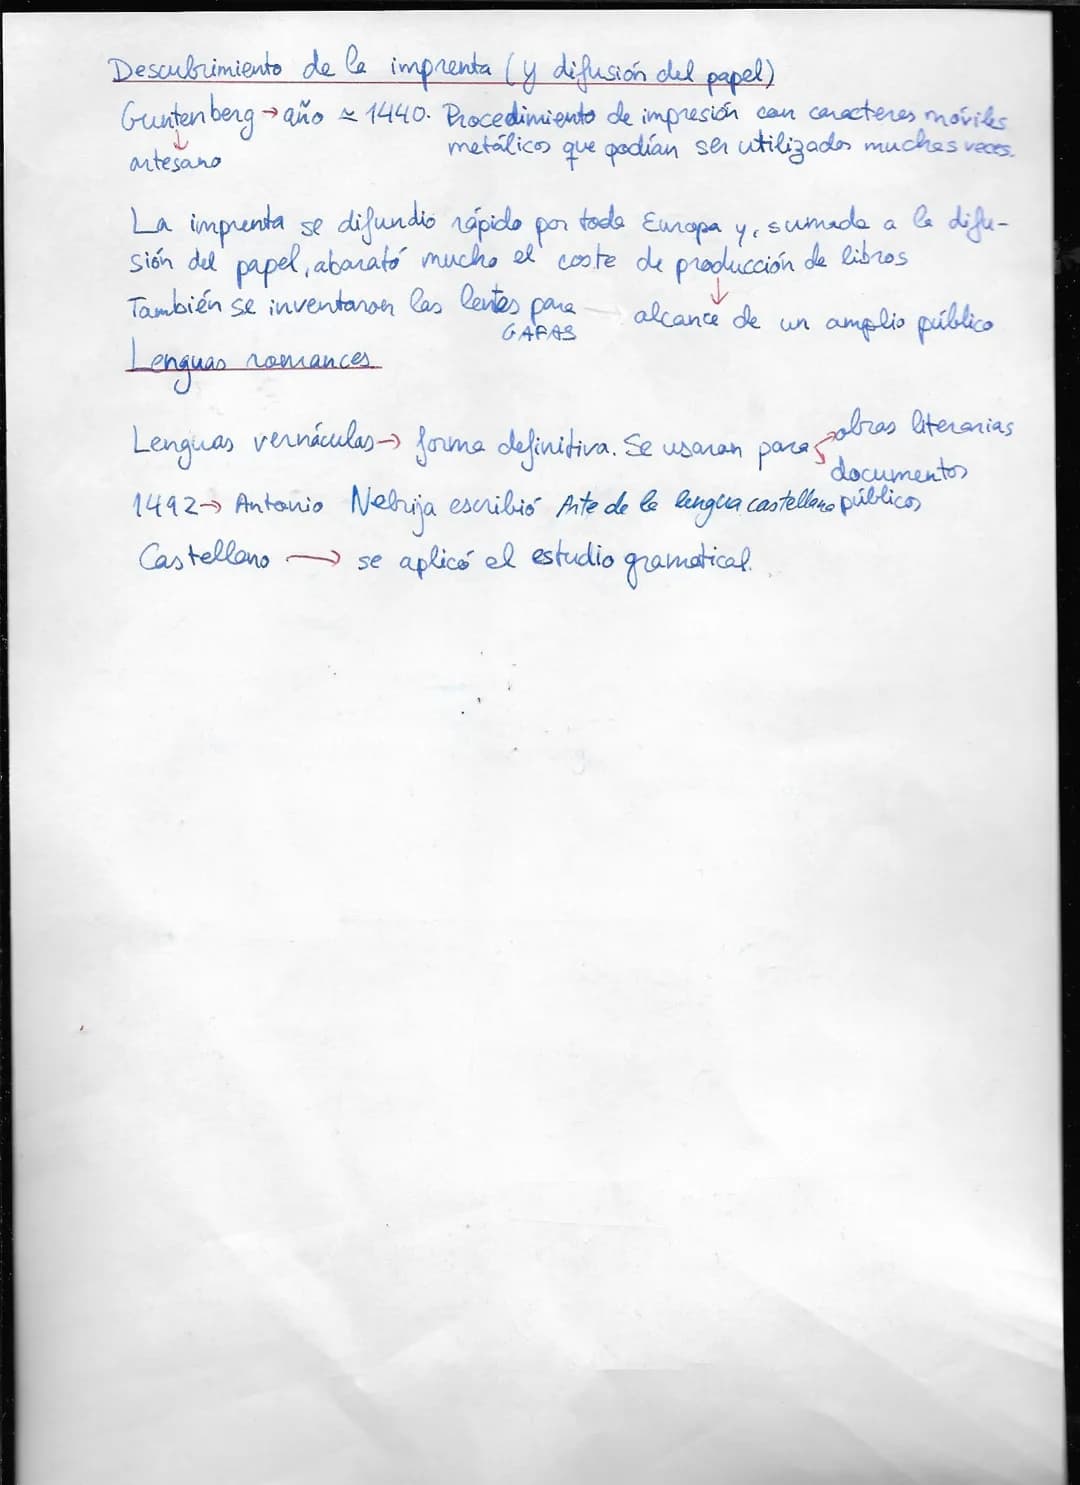 Descubrimiento de la imprenta (y difusión del papel)
Guntenberg → año ≃ 1440. Procedimiento de impresión con caracteres móviles
↓
artesano
metálicos que podían ser utilizados muchas veces.
La imprenta se difundio rápido por toda Europa y, sumada a la difu-
sión del papel, abarató mucho el coste de producción de libros
↓
También se inventaron las lentes para GAFAS
alcance de un amplio público
Lenguas romances
Lenguas vernáculas → forma definitiva. Se usaran para → obras literarias
→ documentos públicos
1492 → Antonio Nebrija escribió Arte de la lengua castellana
Castellano → se aplicó el estudio gramatical.